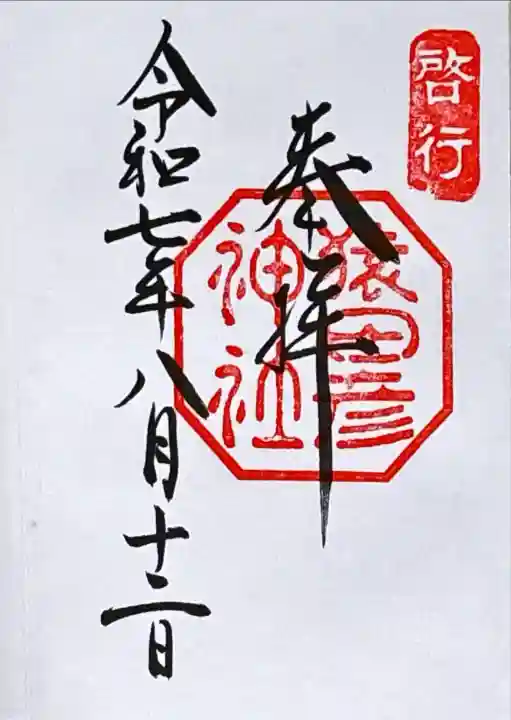 啓行
奉拝
猿田彦
神社
令和七年八月十二日